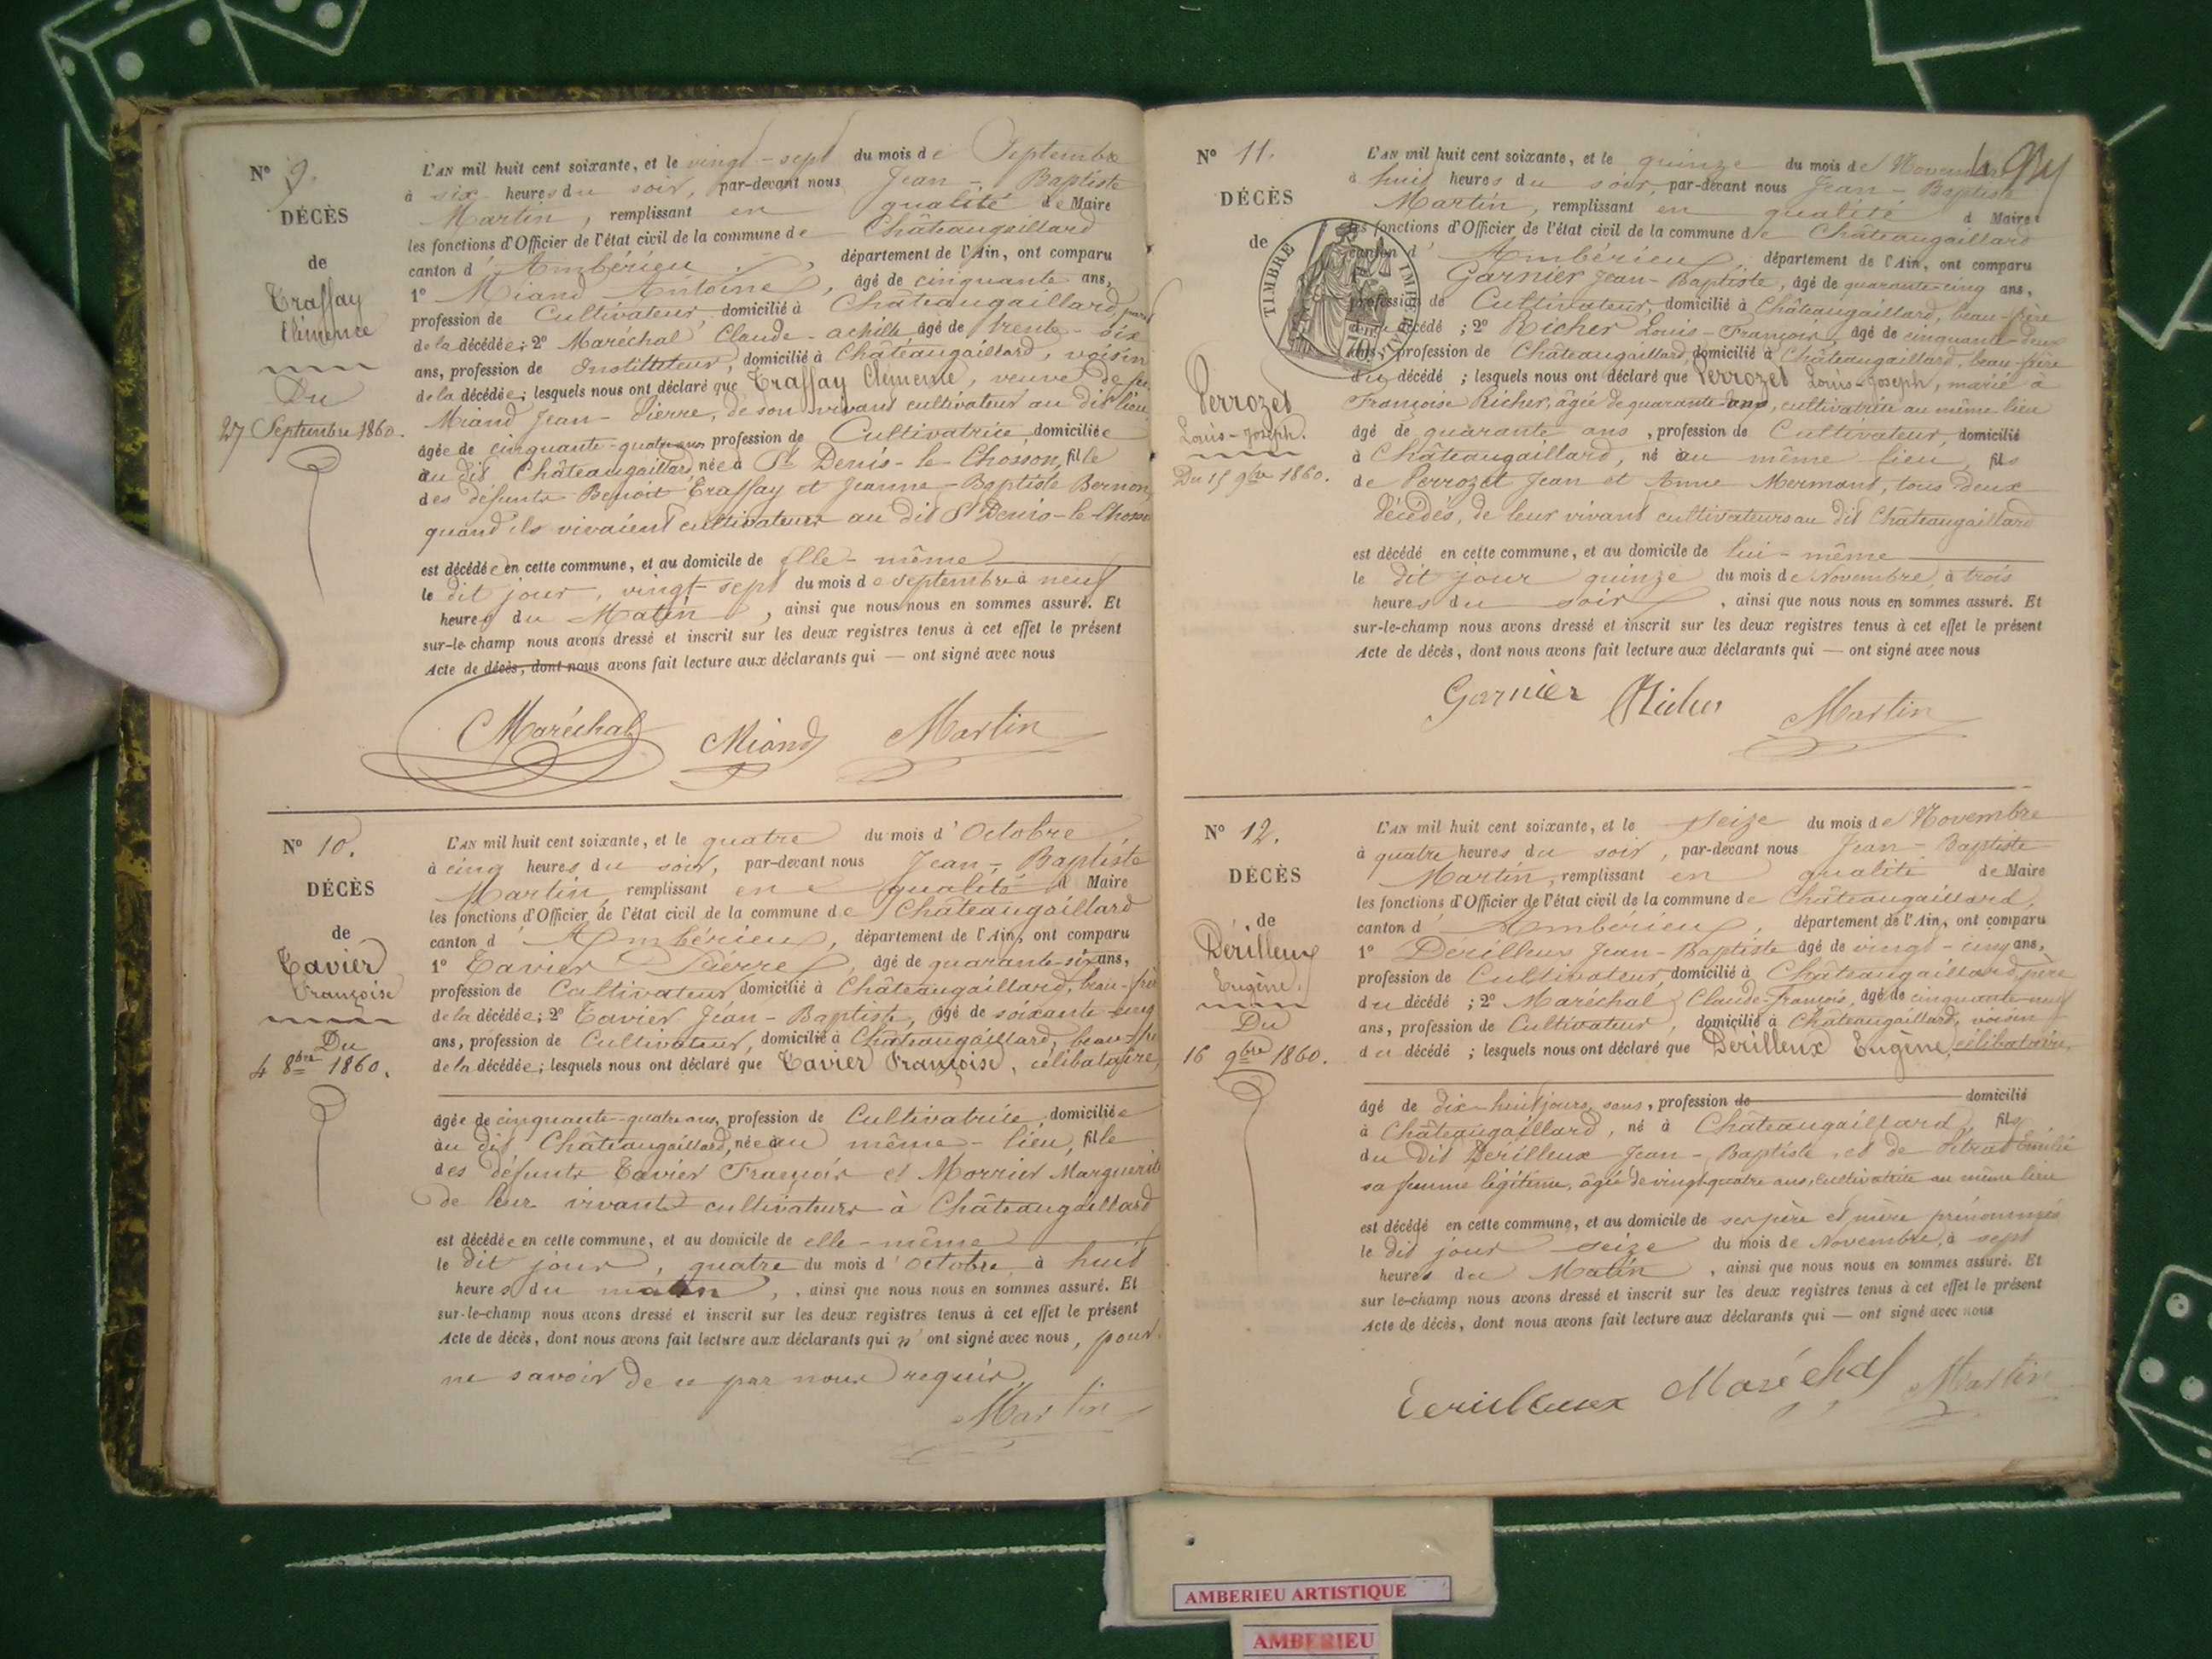 N° 9.
DÉCÈS
de
Traffay
Clémence
Du
27 Septembre 1860.
L'AN mil huit cent soixante, et le vingt-sept du mois de Septembre
à six heures du soir, par-devant nous Jean-Baptiste
Martin, remplissant en qualité de Maire
les fonctions d'Officier de l'état civil de la commune de Châteaugaillard
canton d'Ambérieu, département de l'Ain, ont comparu
1° Miand Antoine, âgé de cinquante ans,
profession de Cultivateur, domicilié à Châteaugaillard,
de la décédée; 2° Maréchal Claude-achille âgé de trente-six
ans, profession de Instituteur, domicilié à Châteaugaillard, voisin
de la décédée; lesquels nous ont déclaré que Traffay Clémence, veuve de feu
Miand Jean-Pierre, de son vivant cultivateur au dit lieu,
âgée de cinquante-quatre ans profession de Cultivatrice, domiciliée
au dit Châteaugaillard, née à St Denis-le-Chosson, fille
des défunts Benoit Traffay et Jeanne-Baptiste Bernon,
quand ils vivaient cultivateurs au dit St Denis-le-Chosson
est décédée en cette commune, et au domicile de elle-même
le dit jour, vingt-sept du mois de septembre à neuf
heures du Matin, ainsi que nous nous en sommes assuré. Et
sur-le-champ nous avons dressé et inscrit sur les deux registres tenus à cet effet le présent
Acte de décès, dont nous avons fait lecture aux déclarants qui — ont signé avec nous
Maréchal Miand Martin
N° 10.
DÉCÈS
de
Tavier
Françoise
Du
4 8bre 1860.
L'AN mil huit cent soixante, et le quatre du mois d'Octobre,
à cinq heures du soir, par-devant nous Jean-Baptiste
Martin, remplissant en qualité d Maire
les fonctions d'Officier de l'état civil de la commune de Châteaugaillard
canton d'Ambérieu, département de l'Ain, ont comparu
1° Tavier Pierre, âgé de quarante-six ans,
profession de Cultivateur, domicilié à Châteaugaillard, beau-frère
de la décédée; 2° Tavier Jean-Baptiste, âgé de soixante-cinq
ans, profession de Cultivateur, domicilié à Châteaugaillard,
de la décédée; lesquels nous ont déclaré que Tavier Françoise, célibataire,
âgée de cinquante-quatre ans, profession de Cultivatrice, domiciliée
au dit Châteaugaillard, née au même-lieu, fille
des défunts Tavier François et Morrier Marguerite
de leur vivant cultivateurs à Châteaugaillard
est décédée en cette commune, et au domicile de elle-même
le dit jour, quatre du mois d'Octobre, à huit
heures du matin, ainsi que nous nous en sommes assuré. Et
sur-le-champ nous avons dressé et inscrit sur les deux registres tenus à cet effet le présent
Acte de décès, dont nous avons fait lecture aux déclarants qui n'ont signé avec nous, pour
ne savoir de ce par nous requis.
Martin
N° 11.
DÉCÈS
de
TIMBRE IMPERIAL
Perrozet
Louis-Joseph.
Du 15 9bre 1860.
L'AN mil huit cent soixante, et le quinze du mois de Novembre
à huit heures du soir, par-devant nous Jean-Baptiste
Martin, remplissant en qualité d Maire
les fonctions d'Officier de l'état civil de la commune de Châteaugaillard
canton d'Ambérieu, département de l'Ain, ont comparu
Garnier Jean-Baptiste, âgé de quarante-cinq ans,
profession de Cultivateur, domicilié à Châteaugaillard, beau-frère
du décédé; 2° Richer Louis-François, âgé de cinquante-deux
ans, profession de Châteaugaillard domicilié à Châteaugaillard, beau-frère
du décédé; lesquels nous ont déclaré que Perrozet Louis-Joseph, marié à
Françoise Richer, âgée de quarante ans, cultivatrice au même lieu
âgé de quarante ans, profession de Cultivateur, domicilié
à Châteaugaillard, né au même lieu, fils
de Perrozet Jean et Anne Mermant, tous deux
décédés, de leur vivant cultivateurs au dit Châteaugaillard
est décédé en cette commune, et au domicile de lui-même
le dit jour quinze du mois de Novembre, à trois
heures du soir, ainsi que nous nous en sommes assuré. Et
sur-le-champ nous avons dressé et inscrit sur les deux registres tenus à cet effet le présent
Acte de décès, dont nous avons fait lecture aux déclarants qui — ont signé avec nous
Garnier Richer Martin
N° 12.
DÉCÈS
de
Dérilleux
Eugène.
Du
16 9bre 1860.
L'AN mil huit cent soixante, et le seize du mois de Novembre
à quatre heures du soir, par-devant nous Jean-Baptiste
Martin, remplissant en qualité de Maire
les fonctions d'Officier de l'état civil de la commune de Châteaugaillard,
canton d'Ambérieu, département de l'Ain, ont comparu
1° Dérilleux Jean-Baptiste âgé de vingt-cinq ans,
profession de Cultivateur, domicilié à Châteaugaillard, père
du décédé; 2° Maréchal Claude-François, âgé de cinquante-neuf
ans, profession de Cultivateur, domicilié à Châteaugaillard, voisin
du décédé; lesquels nous ont déclaré que Dérilleux Eugène, célibataire,
âgé de dix-huit jours, sans, profession de domicilié
à Châteaugaillard, né à Châteaugaillard, fils
du dit Dérilleux Jean-Baptiste, et de Emilie
sa femme légitime, âgée de vingt-quatre ans, cultivatrice au même lieu
est décédé en cette commune, et au domicile de ses père et mère prénommés
le dit jour seize du mois de Novembre, à sept
heures du Matin, ainsi que nous nous en sommes assuré. Et
sur le-champ nous avons dressé et inscrit sur les deux registres tenus à cet effet le présent
Acte de décès, dont nous avons fait lecture aux déclarants qui — ont signé avec nous
Derilleux Maréchal Martin
AMBERIEU ARTISTIQUE
AMBERIEU